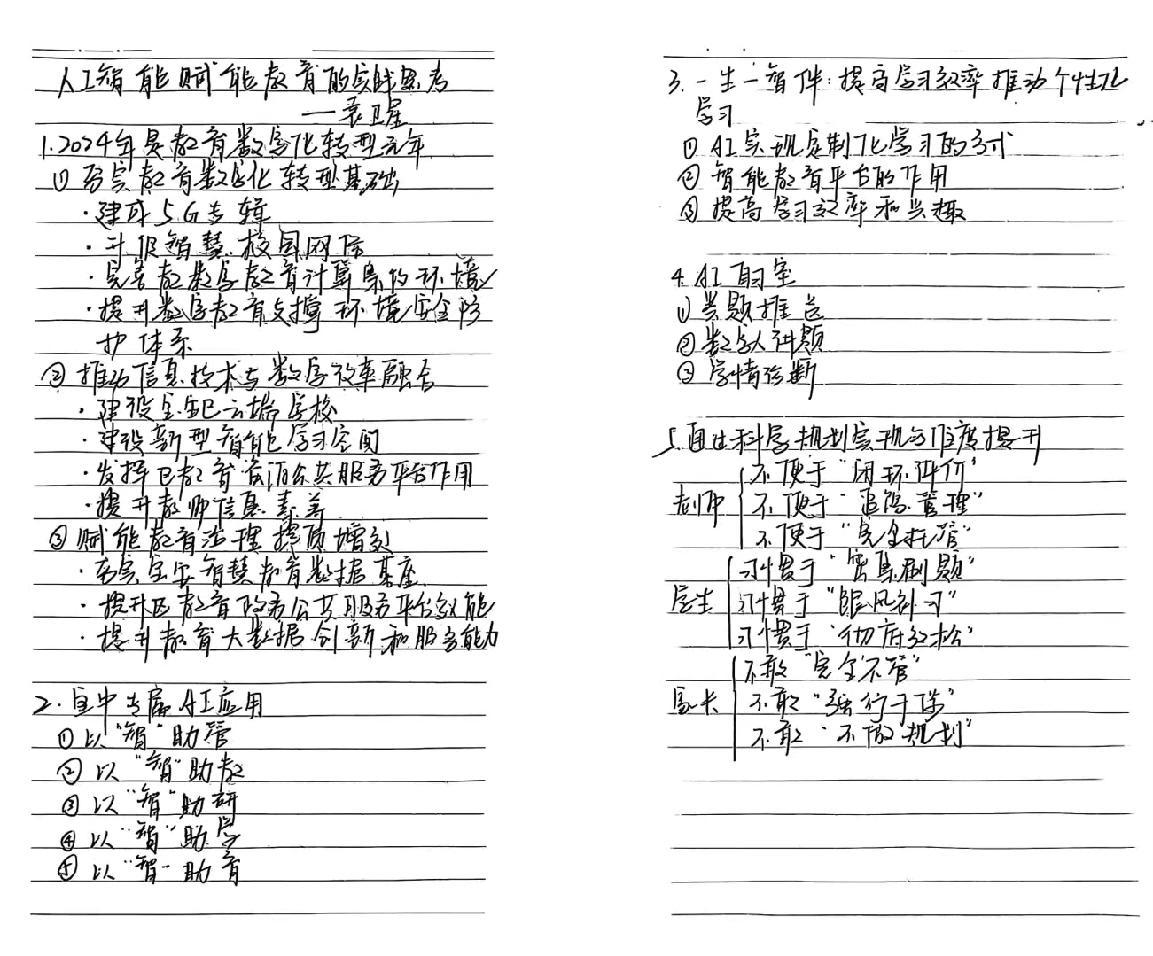 人工智能赋能教育的实践思考
——袁卫星
1.2024年是教育数字化转型元年
① 夯实教育数字化转型基础
·建成5G专辑
·升级智慧校园网络
·完善教数字教育计算集约环境
·提升数字教育支撑环境安全防
护体系
② 推动信息技术与数字效率融合
·建设宝安云端学校
·建设新型智能学习空间
·发挥区教育资源公共服务平台作用
·提升教师信息素养
③ 赋能教育治理提质增效
·夯实宝安智慧教育数据基座
·提升区教育政务公共服务平台效能
·提升教育大数据创新和服务能力
2.宝中专属AI应用
① 以“智”助管
② 以“智”助教
③ 以“智”助研
④ 以“智”助学
⑤ 以“智”助育
3.一生一智伴:提高学习效率推动个性化
学习
① AI实现定制化学习的方式
② 智能教育平台的作用
③ 提高学习效率和兴趣
4.AI自习室
① 类题推送
② 数字人讲题
③ 学情诊断
5.通过科学规划实现多维度提升
不便于“闭环评价”
老师 不便于“追踪管理”
不便于“完全托管”
习惯于“密集刷题”
学生 习惯于“跟风补习”
习惯于
不敢“完全不管”
家长 不敢“强行干涉”
不敢“不做规划”